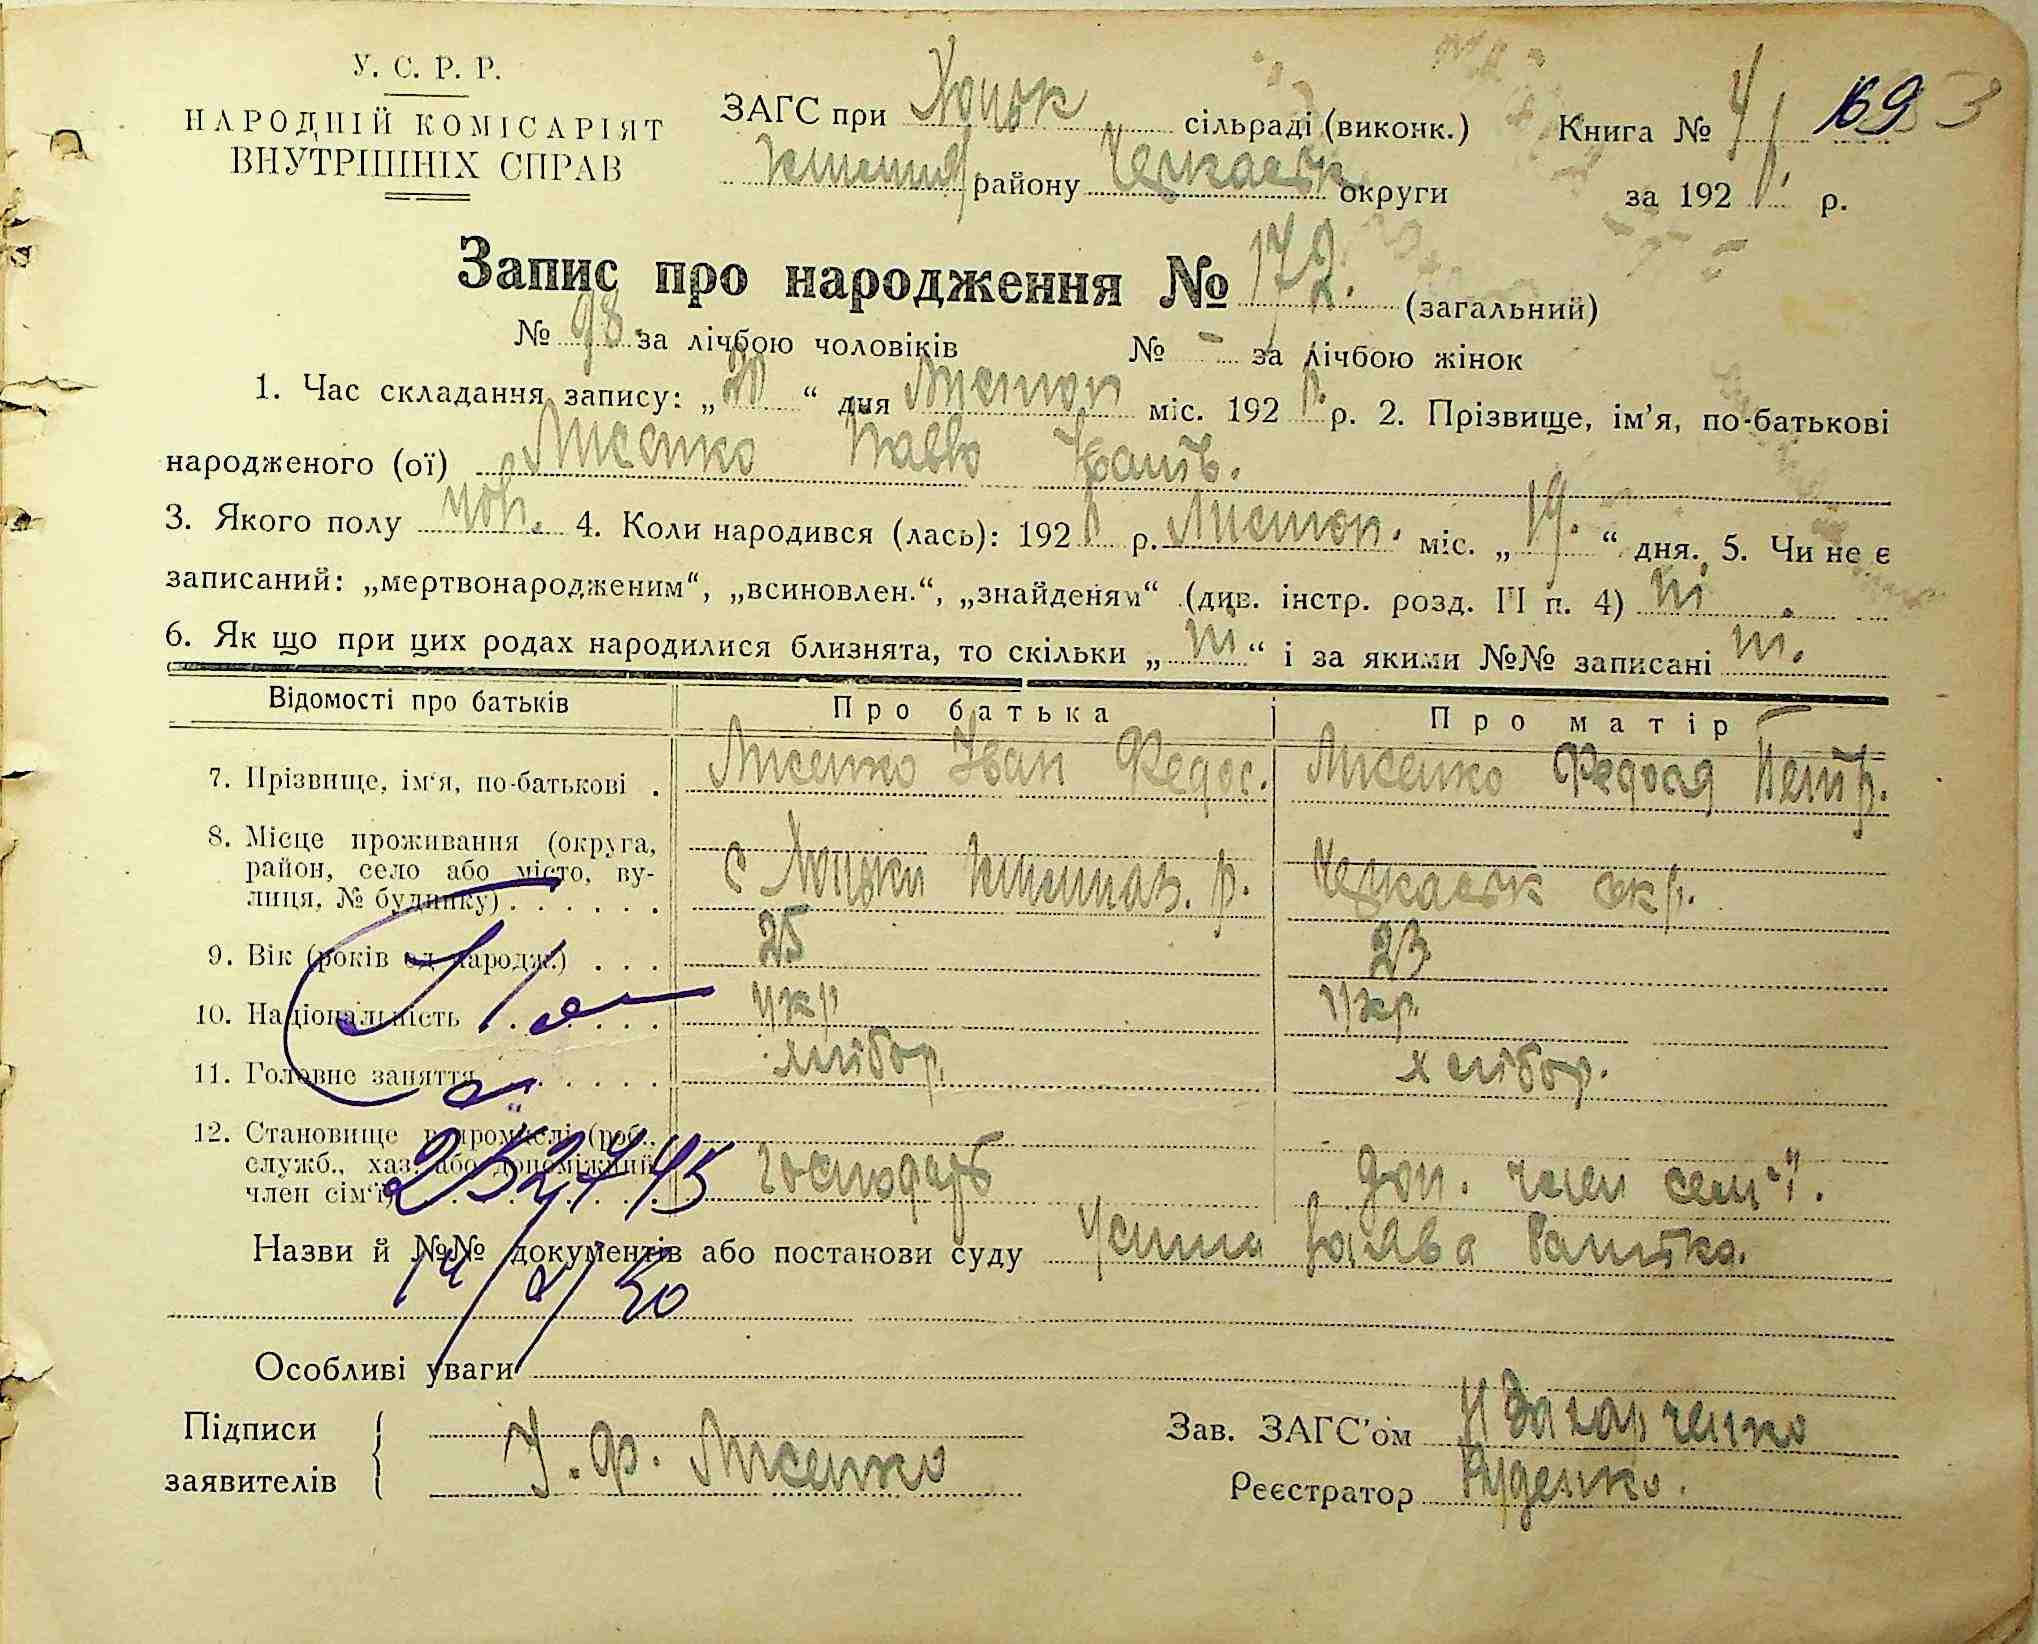 У. С. Р. Р.
НАРОДНІЙ КОМІСАРІЯТ
ВНУТРІШНІХ СПРАВ
ЗАГС при сільраді (виконк.) Книга № 4 169
району Черкаськ округи за 192 р.
Запис про народження № 172. (загальний)
№ 98. за лічбою чоловіків № - за лічбою жінок
1. Час складання запису: „20“ дня Листоп міс. 192 р. 2. Прізвище, ім’я, по-батькові
народженого (ої) Лисенко Павло Іванів.
3. Якого полу чол. 4. Коли народився (лась): 192 р. Листоп. міс. „19.“ дня. 5. Чи не є
записаний: „мертвонародженим“, „всиновлен.“, „знайденям“ (див. інстр. розд. III п. 4) ні
6. Як що при цих родах народилися близнята, то скільки „ні“ і за якими №№ записані ні.
Відомості про батьків Про батька Про матір
7. Прізвище, ім‘я, по-батькові . Лисенко Іван Федос. Лисенко Федося Петр.
8. Місце проживання (округа,
район, село або місто, ву-
лиця, № будинку) . . . . . . с р. Черкаськ окр.
9. Вік (років од народж.) . . . 25 23
10. Національність . . . . . . укр укр.
11. Головне заняття . . . . . . хлібор. хлібор.
12. Становище в промислі (роб.,
служб., хаз. або допоміжний
член сім‘ї) . . . господарь доп. член сем‘ї.
Назви й №№ документів або постанови суду Устна заява батька.
Особливі уваги
Підписи
заявителів
І. Ф. Лисенко
Зав. ЗАГС’ом Захарченко
Реєстратор Руденко.